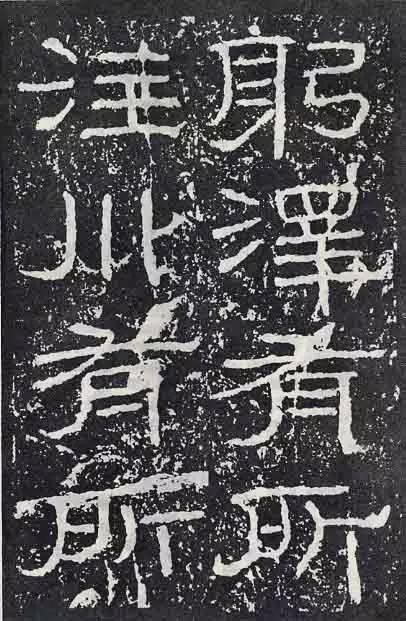 躬澤有所
注川有所